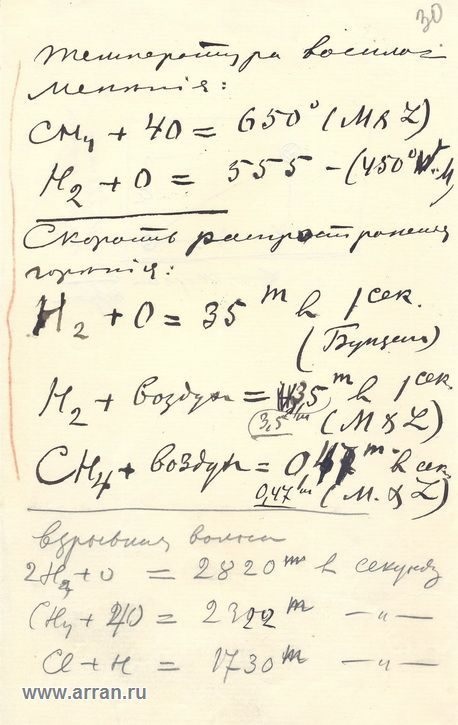 30
Температура воспла-
мененія:
CH4 + 4O = 650° (M & L)
H2 + O = 555 – (450° M)
Скорость распространения
горѣнія:
H2 + O = 35 m в 1 сек.
(Бунзенъ)
H2 + воздух = 3,5 m в 1 сек
(3,5 m) (M & L)
CH4 + воздух = 0,47 m в сек
0,47 m (M. & L)
взрывная волна
2H2 + O = 2820 m в секунду
CH4 + 4O = 2322 m — „ —
Cl + H = 1730 m — „ —
www.arran.ru